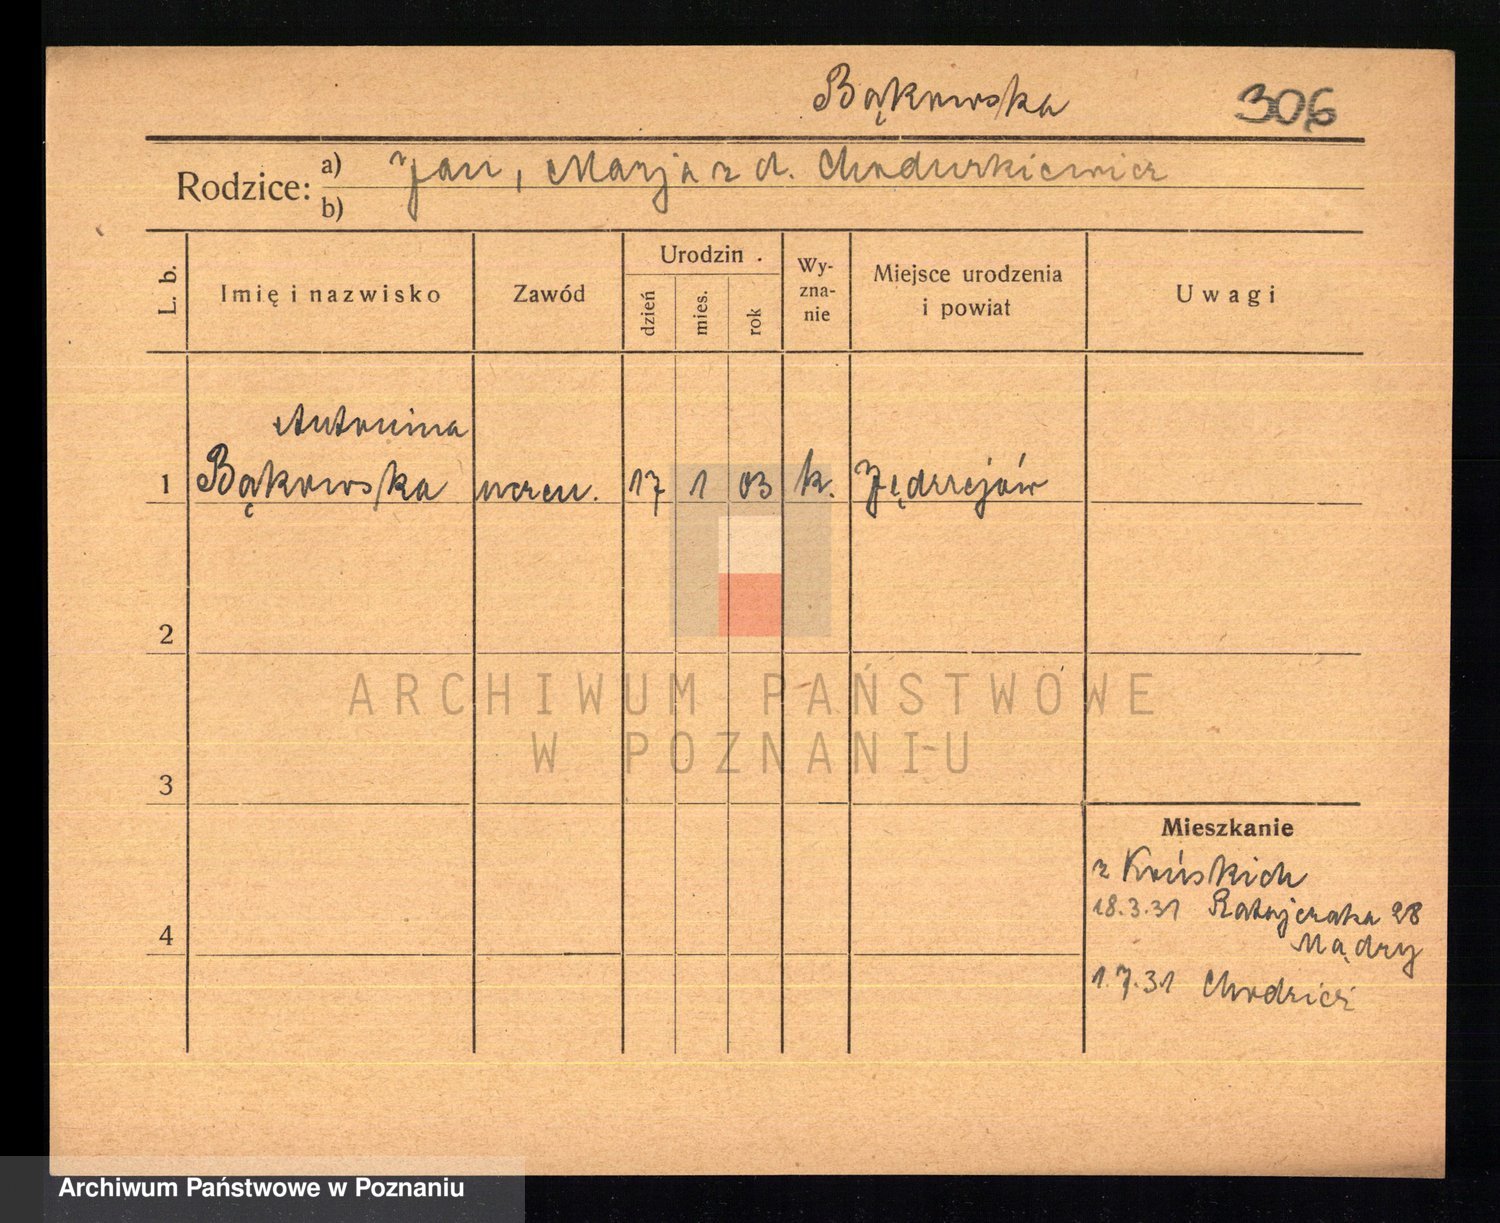 Bąkowska
306
Rodzice:
a) Jan, Marja z d. Chodurkiewicz
b)
L. b.
Imię i nazwisko
Zawód
Urodzin .
dzień
mies.
rok
Wy-
zna-
nie
Miejsce urodzenia
i powiat
Uwagi
Antonina
1 Bąkowska uczen. 17 1 03 k. Jędrzejów
2
ARCHIWUM PAŃSTWOWE
W POZNANIU
3
Mieszkanie
z Końskich
18.3.31 Ratajczaka 28
Mądry
4
1.7.31 Chodzież
Archiwum Państwowe w Poznaniu